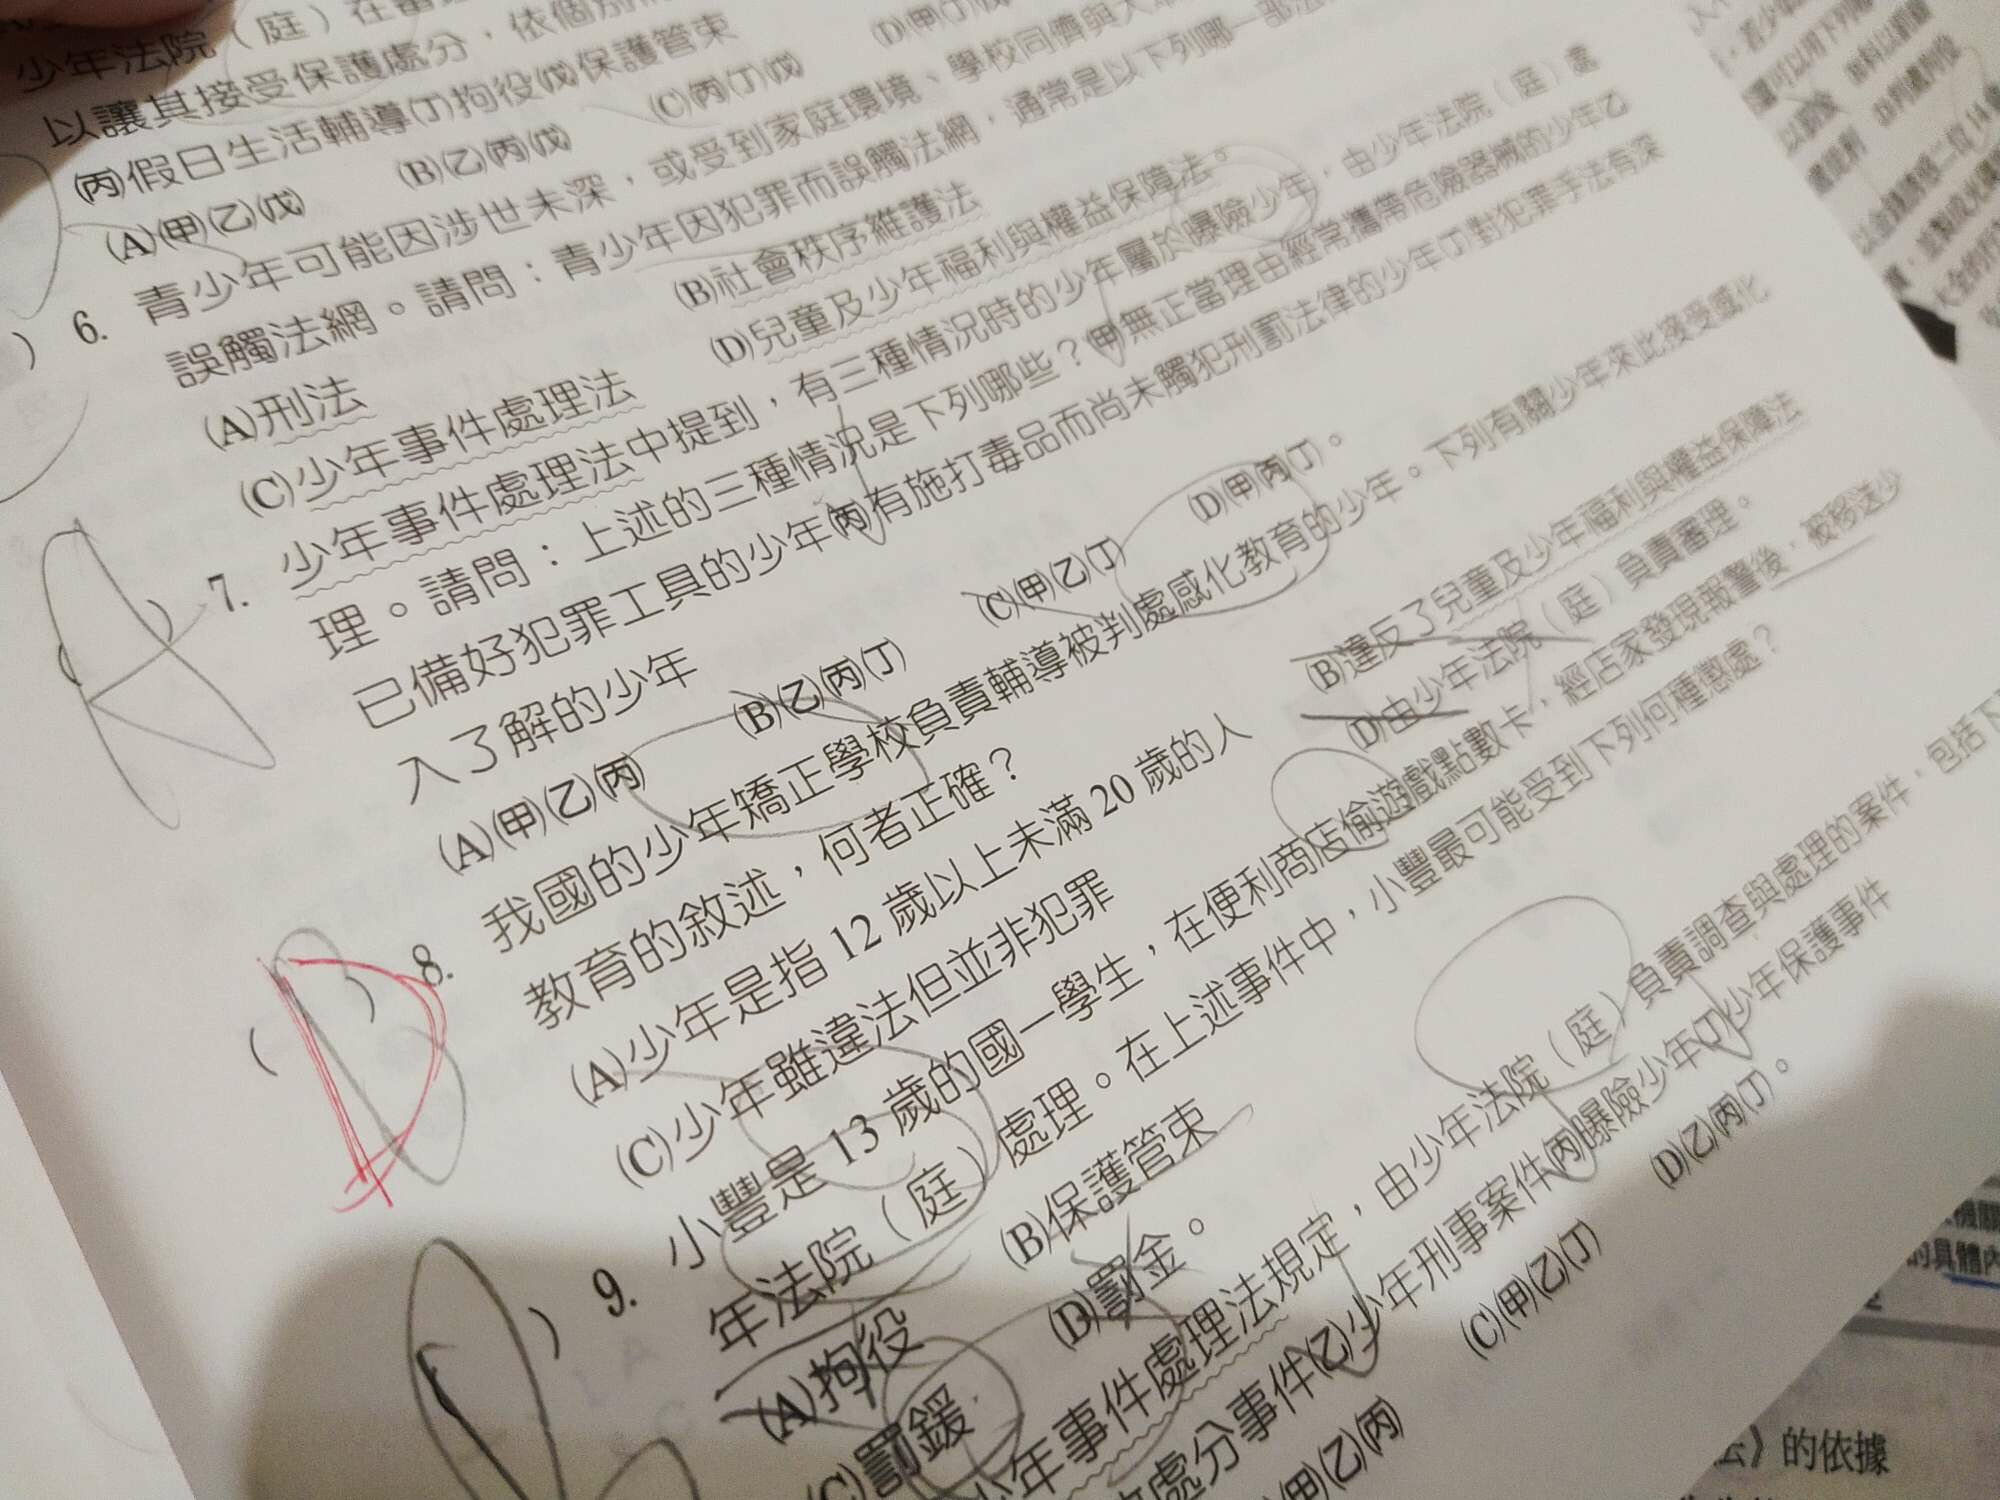 少年法院（庭）在審
以讓其接受保護處分，依個別
(丙)假日生活輔導(丁)拘役(戊)保護管束
(A)(甲)(乙)(戊) (B)(乙)(丙)(戊) (C)(丙)(丁)(戊) (D)(甲)(丁)(戊)
( ) 6. 青少年可能因涉世未深，或受到家庭環境、學校同儕與大眾
誤觸法網。請問：青少年因犯罪而誤觸法網，通常是以下列哪一部法
(A)刑法 (B)社會秩序維護法
(C)少年事件處理法 (D)兒童及少年福利與權益保障法。
(A) 7. 少年事件處理法中提到，有三種情況時的少年屬於曝險少年，由少年法院（庭）處
理。請問：上述的三種情況是下列哪些？(甲)無正當理由經常攜帶危險器械的少年(乙)
已備好犯罪工具的少年(丙)有施打毒品而尚未觸犯刑罰法律的少年(丁)對犯罪手法有深
入了解的少年
(A)(甲)(乙)(丙) (B)(乙)(丙)(丁) (C)(甲)(乙)(丁) (D)(甲)(丙)(丁)。
(D) 8. 我國的少年矯正學校負責輔導被判處感化教育的少年。下列有關少年來此接受感化
教育的敘述，何者正確？
(A)少年是指 12 歲以上未滿 20 歲的人 (B)違反了兒童及少年福利與權益保障法
(C)少年雖違法但並非犯罪 (D)由少年法院（庭）負責審理。
(B) 9. 小豐是 13 歲的國一學生，在便利商店偷遊戲點數卡，經店家發現報警後，被移送少
年法院（庭）處理。在上述事件中，小豐最可能受到下列何種懲處？
(A)拘役 (B)保護管束
(C)罰鍰 (D)罰金。
少年事件處理法規定，由少年法院（庭）負責調查與處理的案件，包括下
處分事件(乙)少年刑事案件(丙)曝險少年(丁)少年保護事件
(甲)(乙)(丙) (C)(甲)(乙)(丁) (D)(乙)(丙)(丁)。
的具體內
法》的依據